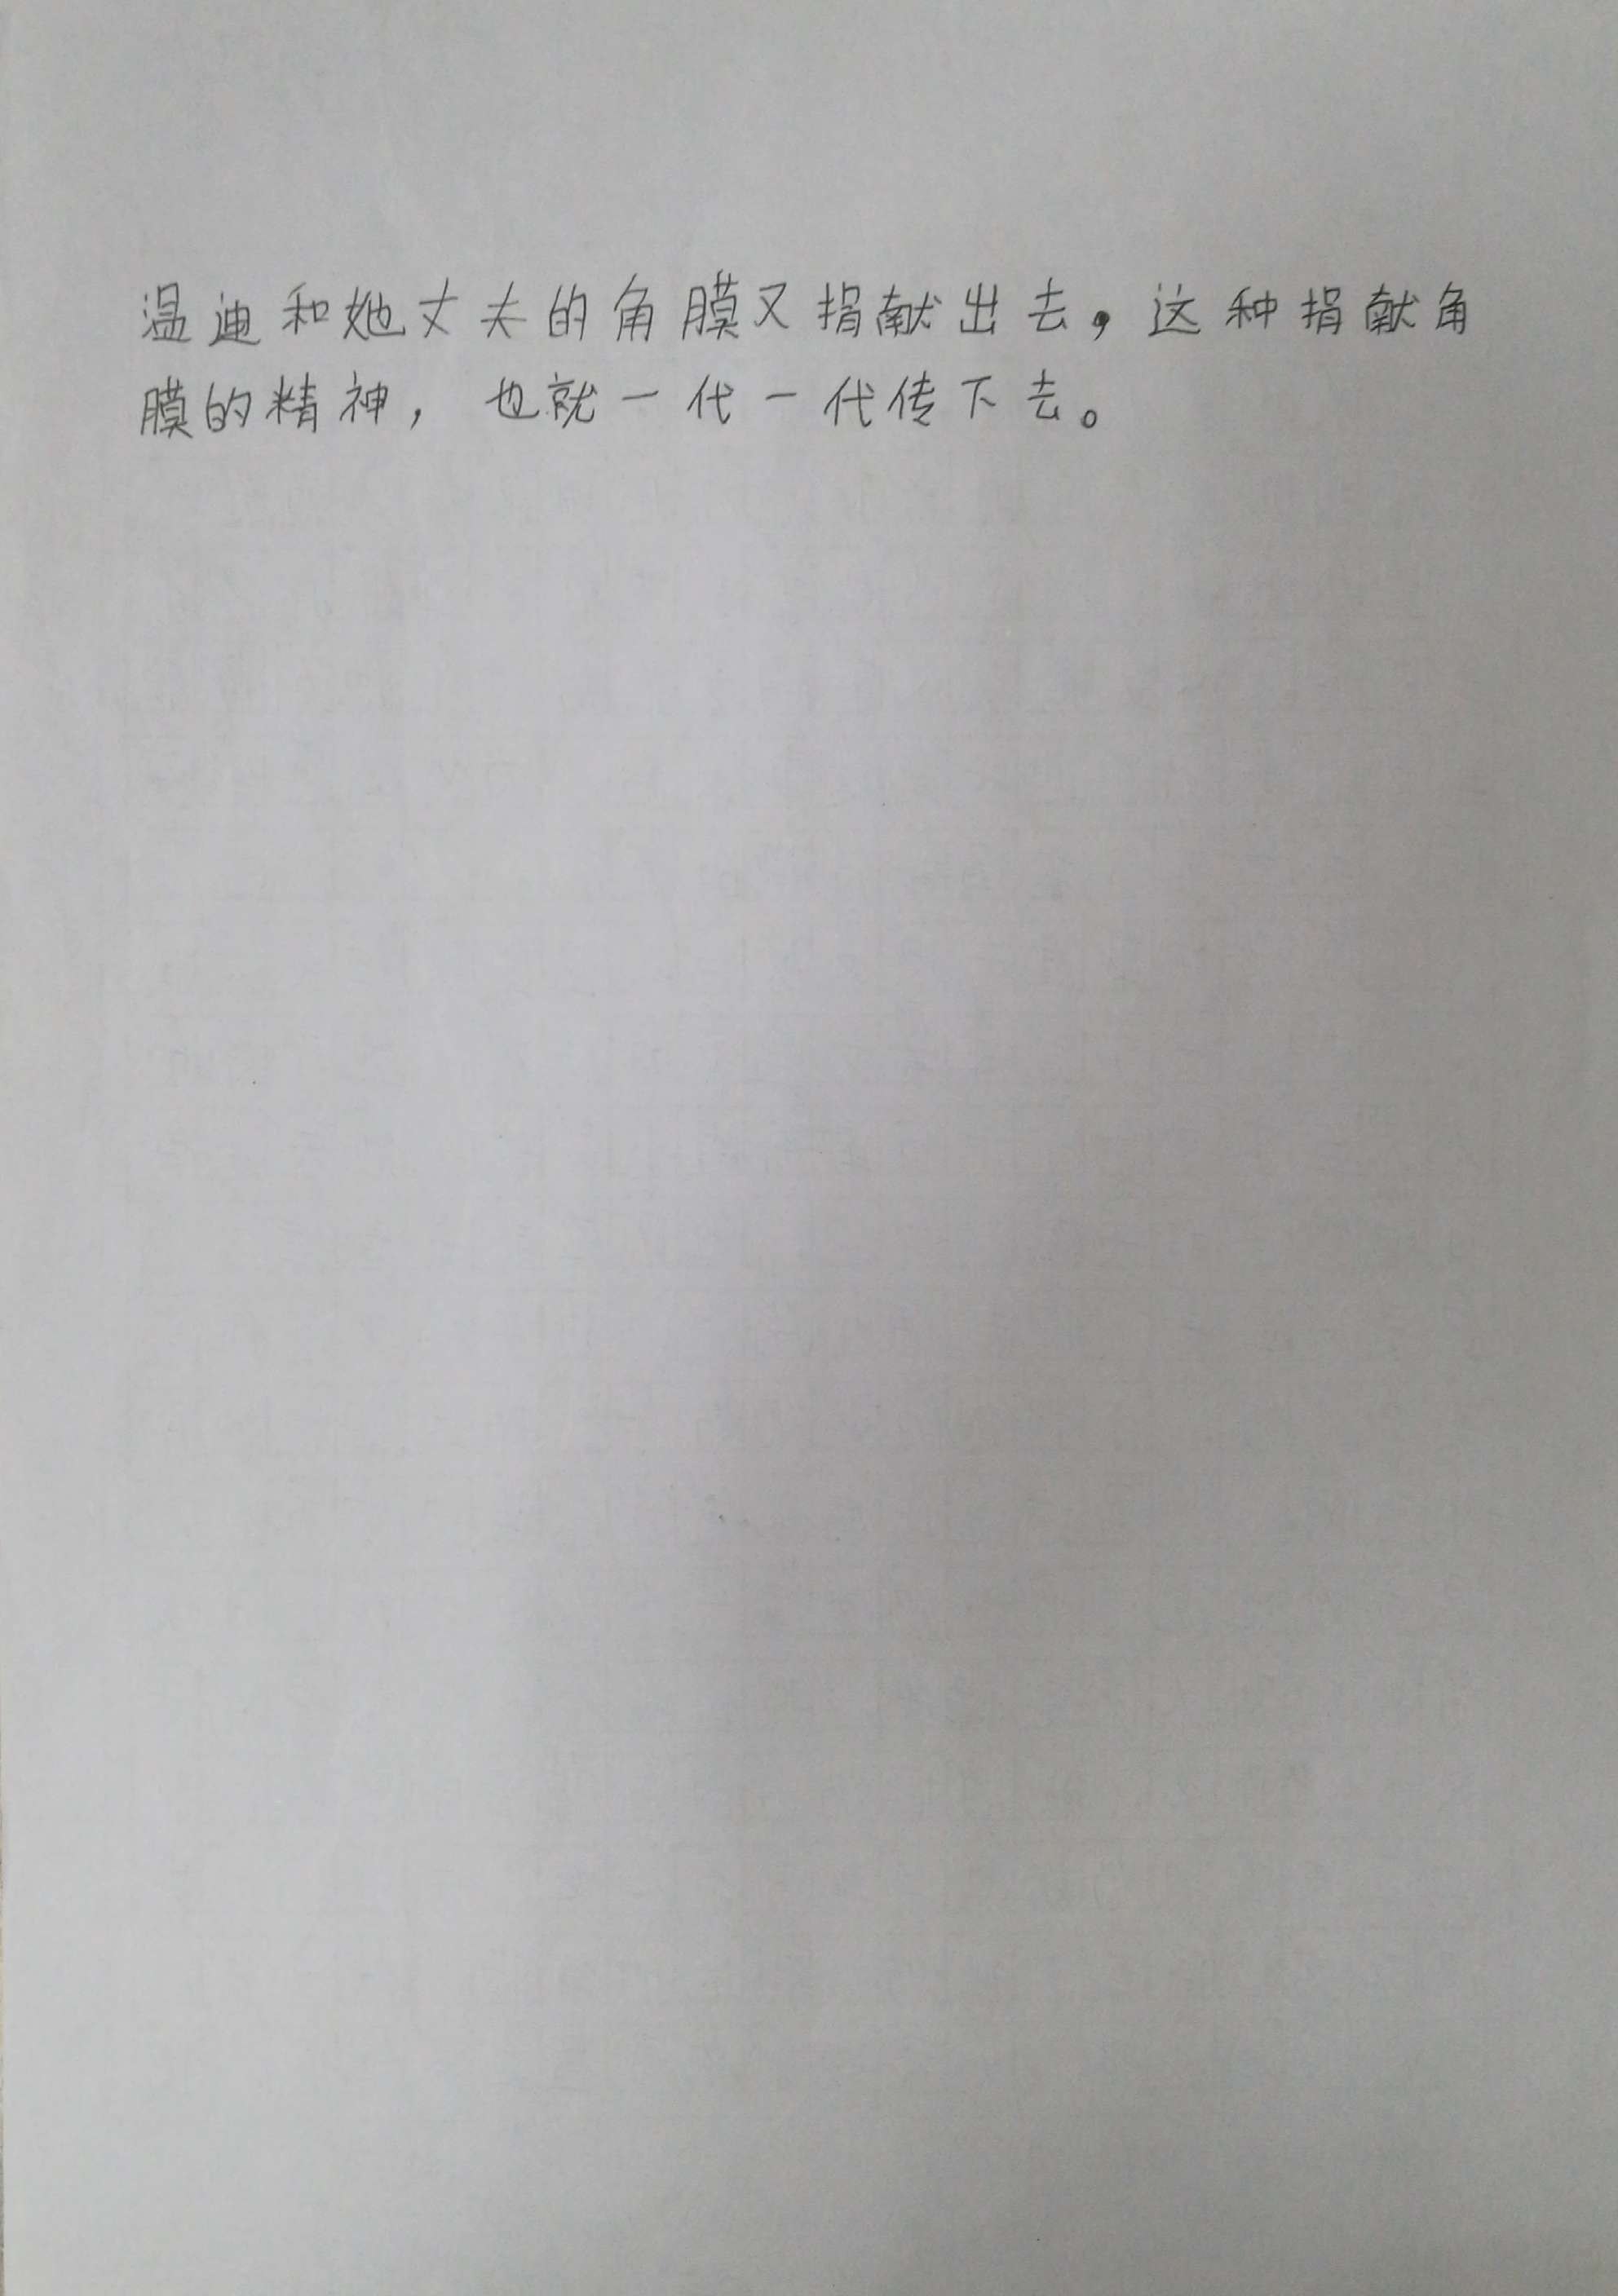 温迪和她丈夫的角膜又捐献出去，这种捐献角
膜的精神，也就一代一代传下去。